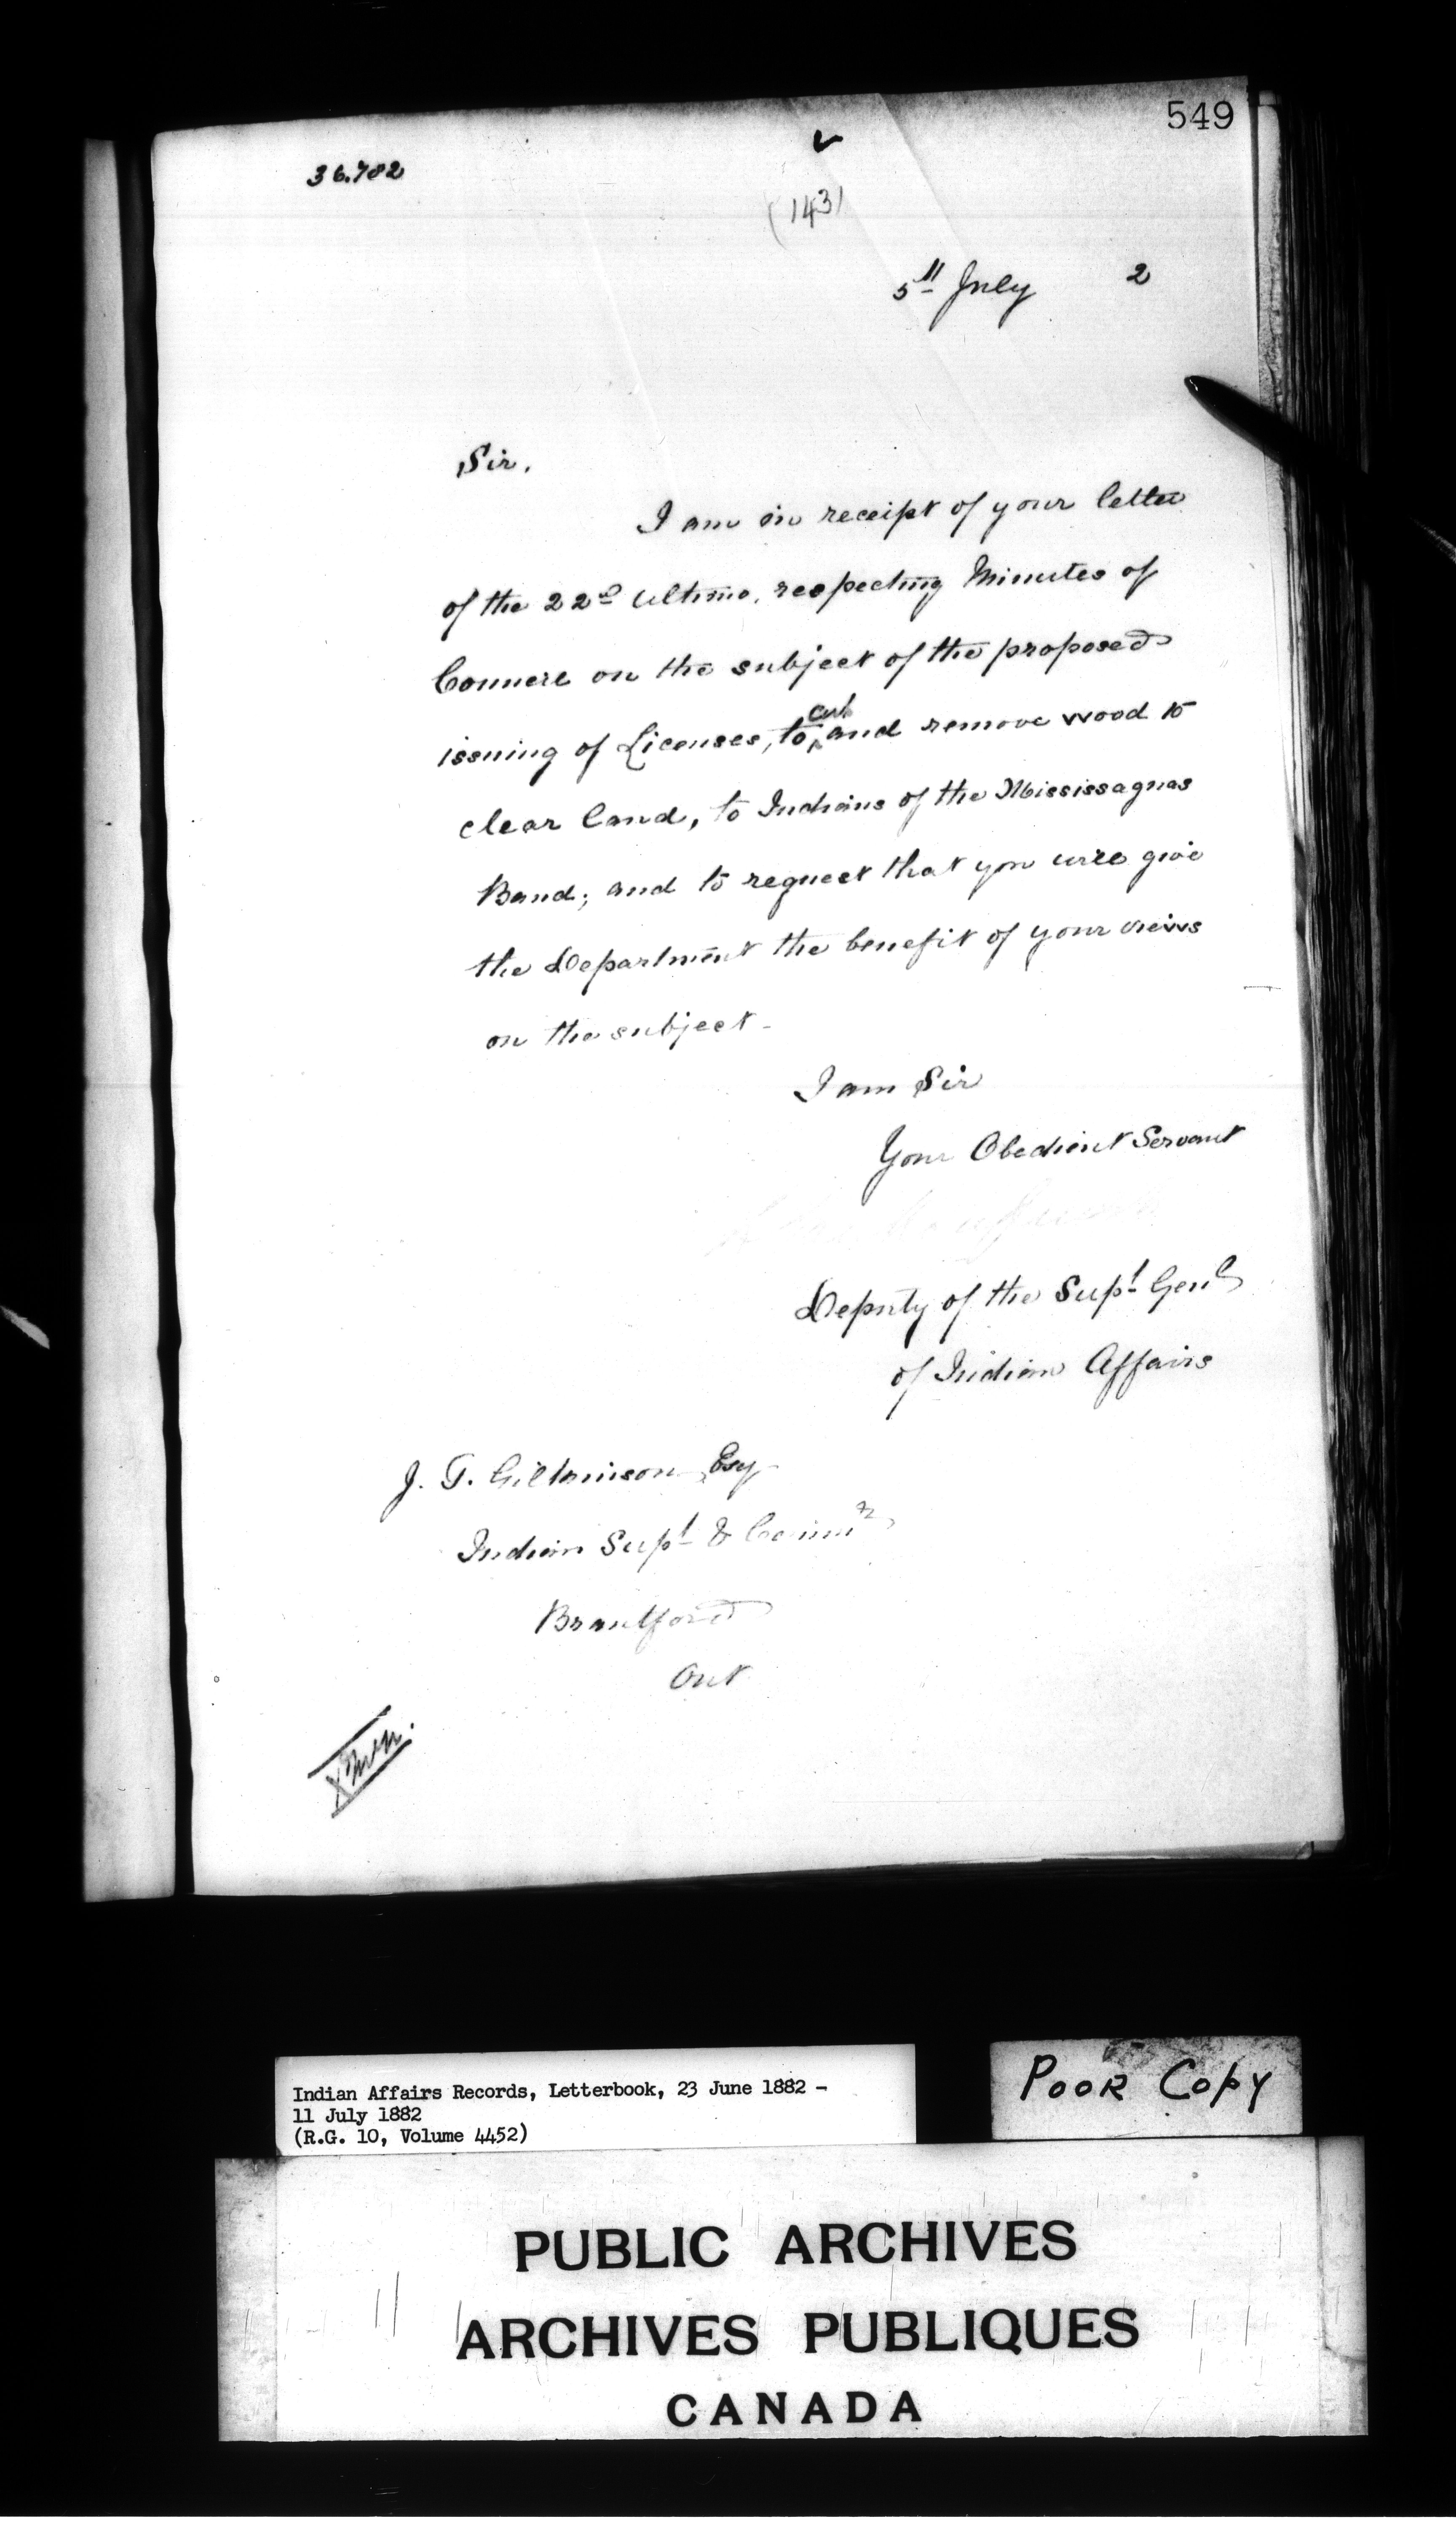 549
36.782
(143)
5th July 2
Sir,
I am in receipt of your letter
of the 22nd ultimo, respecting Minutes of
Council on the subject of the proposed
issuing of Licenses, to cut and remove wood to
clear land, to Indians of the Mississaguas
Band; and to request that you will give
the Department the benefit of your views
on the subject -
I am Sir
Your Obedient Servant
Deputy of the Supt Genl
of Indian Affairs
J. T. Gilkinson Esq
Indian Supt & Commr
Brantford
Ont
Indian Affairs Records, Letterbook, 23 June 1882 -
11 July 1882
(R.G. 10, Volume 4452)
POOR COPY
PUBLIC ARCHIVES
ARCHIVES PUBLIQUES
CANADA